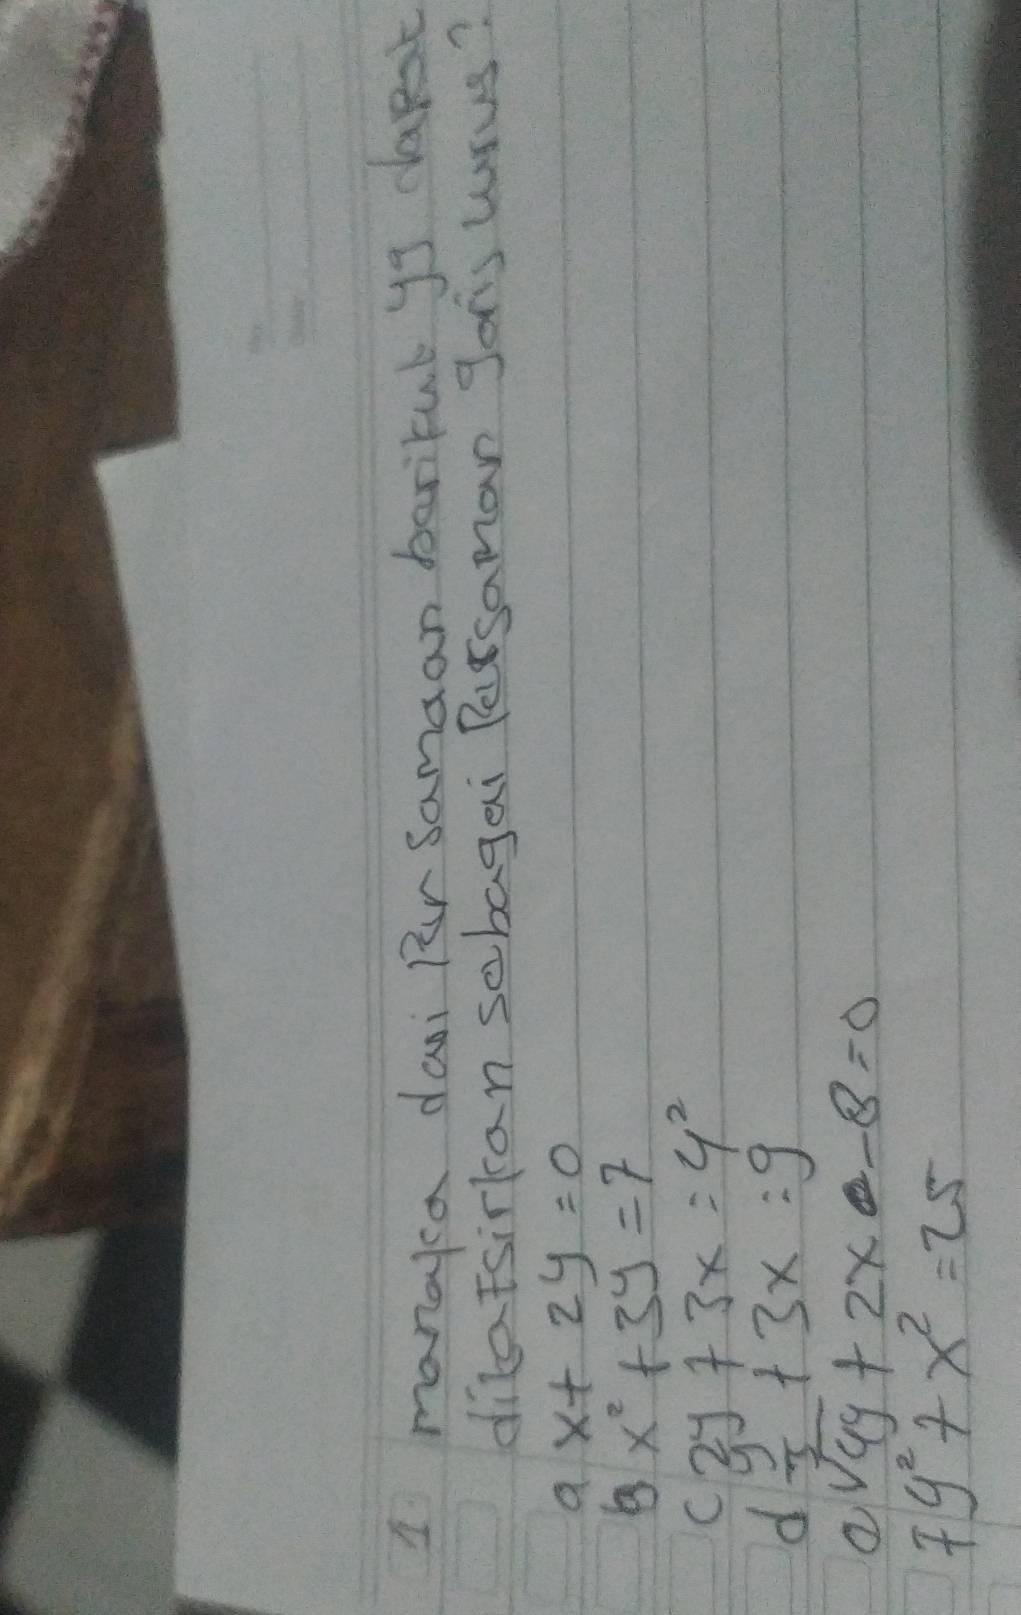 1. manaka dari Persamaan barikut yg dapat
dikatsirkan sabagai Persamaan garis lurus?
a x + 2y = 0
b x² + 3y = 7
c 2y + 3x = y²
d y/3 + 3x = 9
e √4y + 2x - 8 = 0
f y² + x² = 25